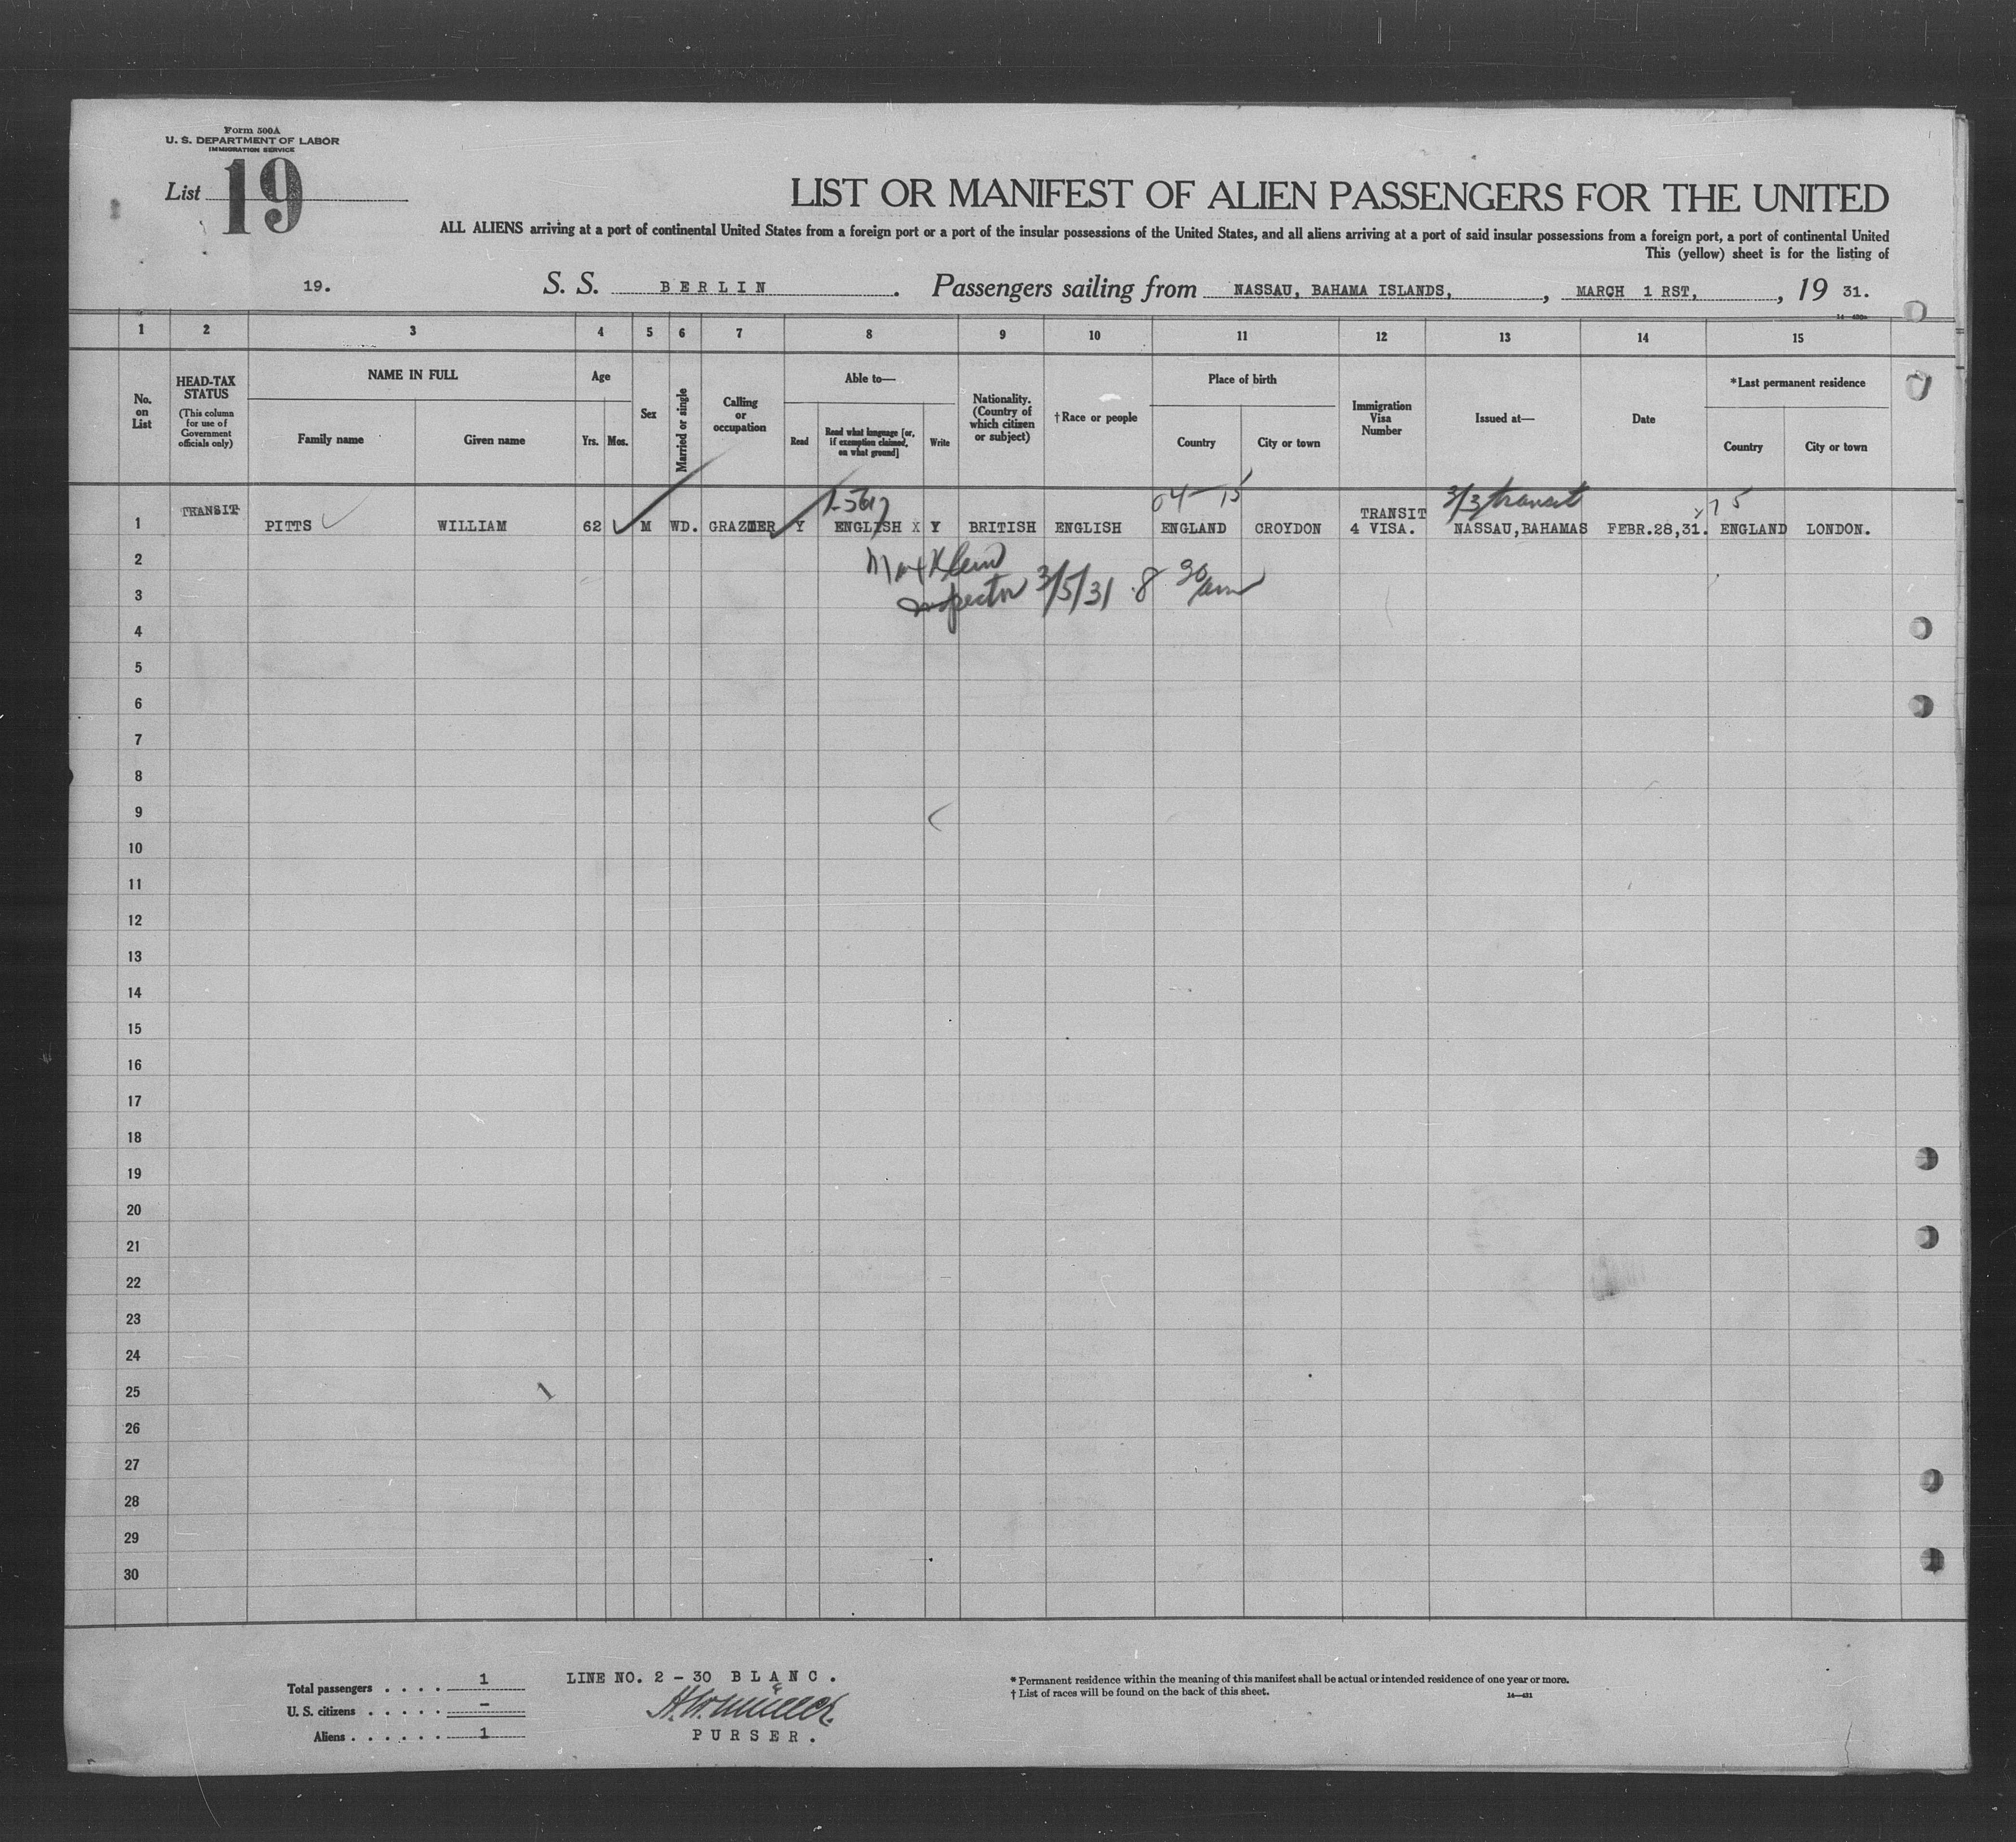 Form 500A
U. S. DEPARTMENT OF LABOR
IMMIGRATION SERVICE
List 19
LIST OR MANIFEST OF ALIEN PASSENGERS FOR THE UNITED
ALL ALIENS arriving at a port of continental United States from a foreign port or a port of the insular possessions of the United States, and all aliens arriving at a port of said insular possessions from a foreign port, a port of continental United
This (yellow) sheet is for the listing of
19. S. S. BERLIN. Passengers sailing from NASSAU, BAHAMA ISLANDS, , MARCH 1 RST, , 19 31.
1 2 3 4 5 6 7 8 9 10 11 12 13 14 15
No. on List
HEAD-TAX STATUS
(This column for use of Government officials only)
NAME IN FULL
Family name Given name
Age
Yrs. Mos.
Sex
Married or single
Calling or occupation
Able to—
Read
Read what language [or, if exemption claimed, on what ground]
Write
Nationality. (Country of which citizen or subject)
†Race or people
Place of birth
Country City or town
Immigration Visa Number
Issued at—
Date
*Last permanent residence
Country City or town
04 - 15 3/3 transit
1 TRANSIT PITTS WILLIAM 62 M WD. GRAZIER Y ENGLISH X Y BRITISH ENGLISH ENGLAND CROYDON TRANSIT 4 VISA. NASSAU,BAHAMAS FEBR.28,31. ENGLAND LONDON.
2
3 Inspector 3/5/31 8 30 am
4
5
6
7
8
9
10
11
12
13
14
15
16
17
18
19
20
21
22
23
24
25
26
27
28
29
30
Total passengers . . . . 1
U. S. citizens . . . . . –
Aliens . . . . . . 1
LINE NO. 2 - 30 BLANC.
PURSER.
* Permanent residence within the meaning of this manifest shall be actual or intended residence of one year or more.
† List of races will be found on the back of this sheet.
14—431